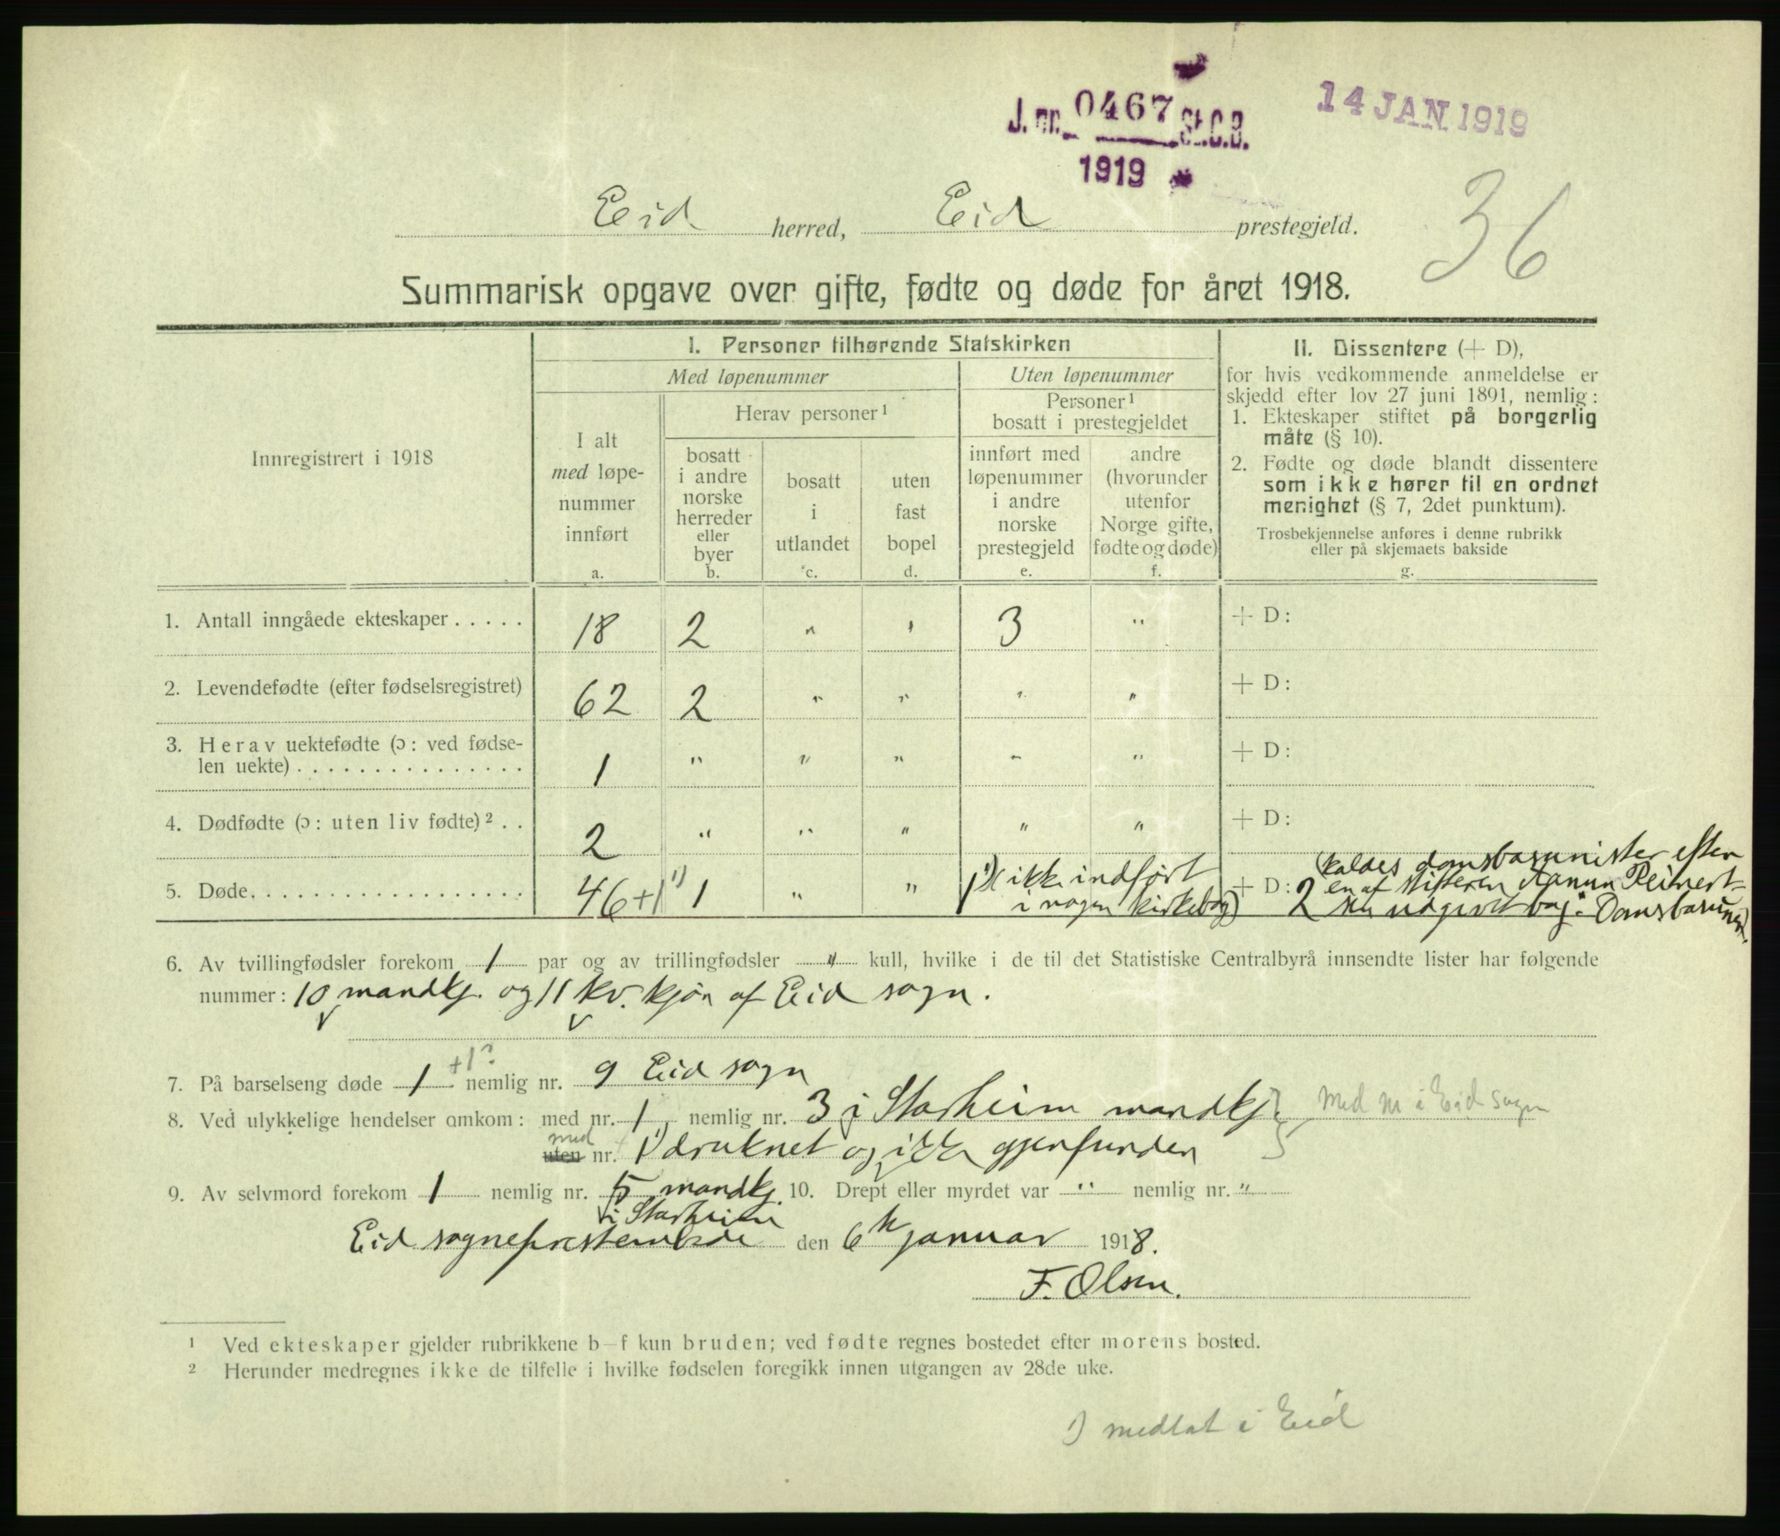 J. nr. 0467 St.C.B.
1919
14 JAN 1919
36
Eid herred, Eid prestegjeld.
Summarisk opgave over gifte, fødte og døde for året 1918.
Innregistrert i 1918
I. Personer tilhørende Statskirken
Med løpenummer
Uten løpenummer
I alt
med løpe-
nummer
innført
a.
Herav personer ¹
bosatt
i andre
norske
herreder
eller
byer
b.
bosatt
i
utlandet
c.
uten
fast
bopel
d.
Personer ¹
bosatt i prestegjeldet
innført med
løpenummer
i andre
norske
prestegjeld
e.
andre
(hvorunder
utenfor
Norge gifte,
fødte og døde)
f.
II. Dissentere (+ D),
for hvis vedkommende anmeldelse er
skjedd efter lov 27 juni 1891, nemlig:
1. Ekteskaper stiftet på borgerlig
måte (§ 10).
2. Fødte og døde blandt dissentere
som ikke hører til en ordnet
menighet (§ 7, 2det punktum).
Trosbekjennelse anføres i denne rubrikk
eller på skjemaets bakside
g.
1. Antall inngåede ekteskaper . . . . . 18 2 " " 3 " + D:
2. Levendefødte (efter fødselsregistret) 62 2 " " " " + D:
3. Herav uektefødte (ɔ: ved fødse-
len uekte) . . . . . . . . . . . . . . . 1 " " " " " + D:
4. Dødfødte (ɔ: uten liv fødte) ² . . 2 " " " " " + D:
5. Døde. . . . . . . . . . . . . . . . . . 46+1 ¹) 1 " " 1 ¹) (ikke indført
i nogen kirkebog) + D: 2 (kaldes domsbasunister efter
en af stifteren
udgivet bog: Domsbasunen).
6. Av tvillingfødsler forekom 1 par og av trillingfødsler " kull, hvilke i de til det Statistiske Centralbyrå innsendte lister har følgende
nummer: 10 mandkj. og 11 kv. kjøn af Eid sogn.
7. På barselseng døde 1 +1? nemlig nr. 9 Eid sogn
8. Ved ulykkelige hendelser omkom: med nr. 1, nemlig nr. 3 i Starheim mandkj. med m i Eid sogn
med
uten nr. 1 ¹) druknet og ikke gjenfunden
9. Av selvmord forekom 1 nemlig nr. 5 mandkj. 10. Drept eller myrdet var " nemlig nr. "
i Starheim
Eid sogneprestembede den 6te januar 1918.
F. Olsen.
¹ Ved ekteskaper gjelder rubrikkene b–f kun bruden; ved fødte regnes bostedet efter morens bosted.
² Herunder medregnes ikke de tilfelle i hvilke fødselen foregikk innen utgangen av 28de uke.
1) medtat i Eid